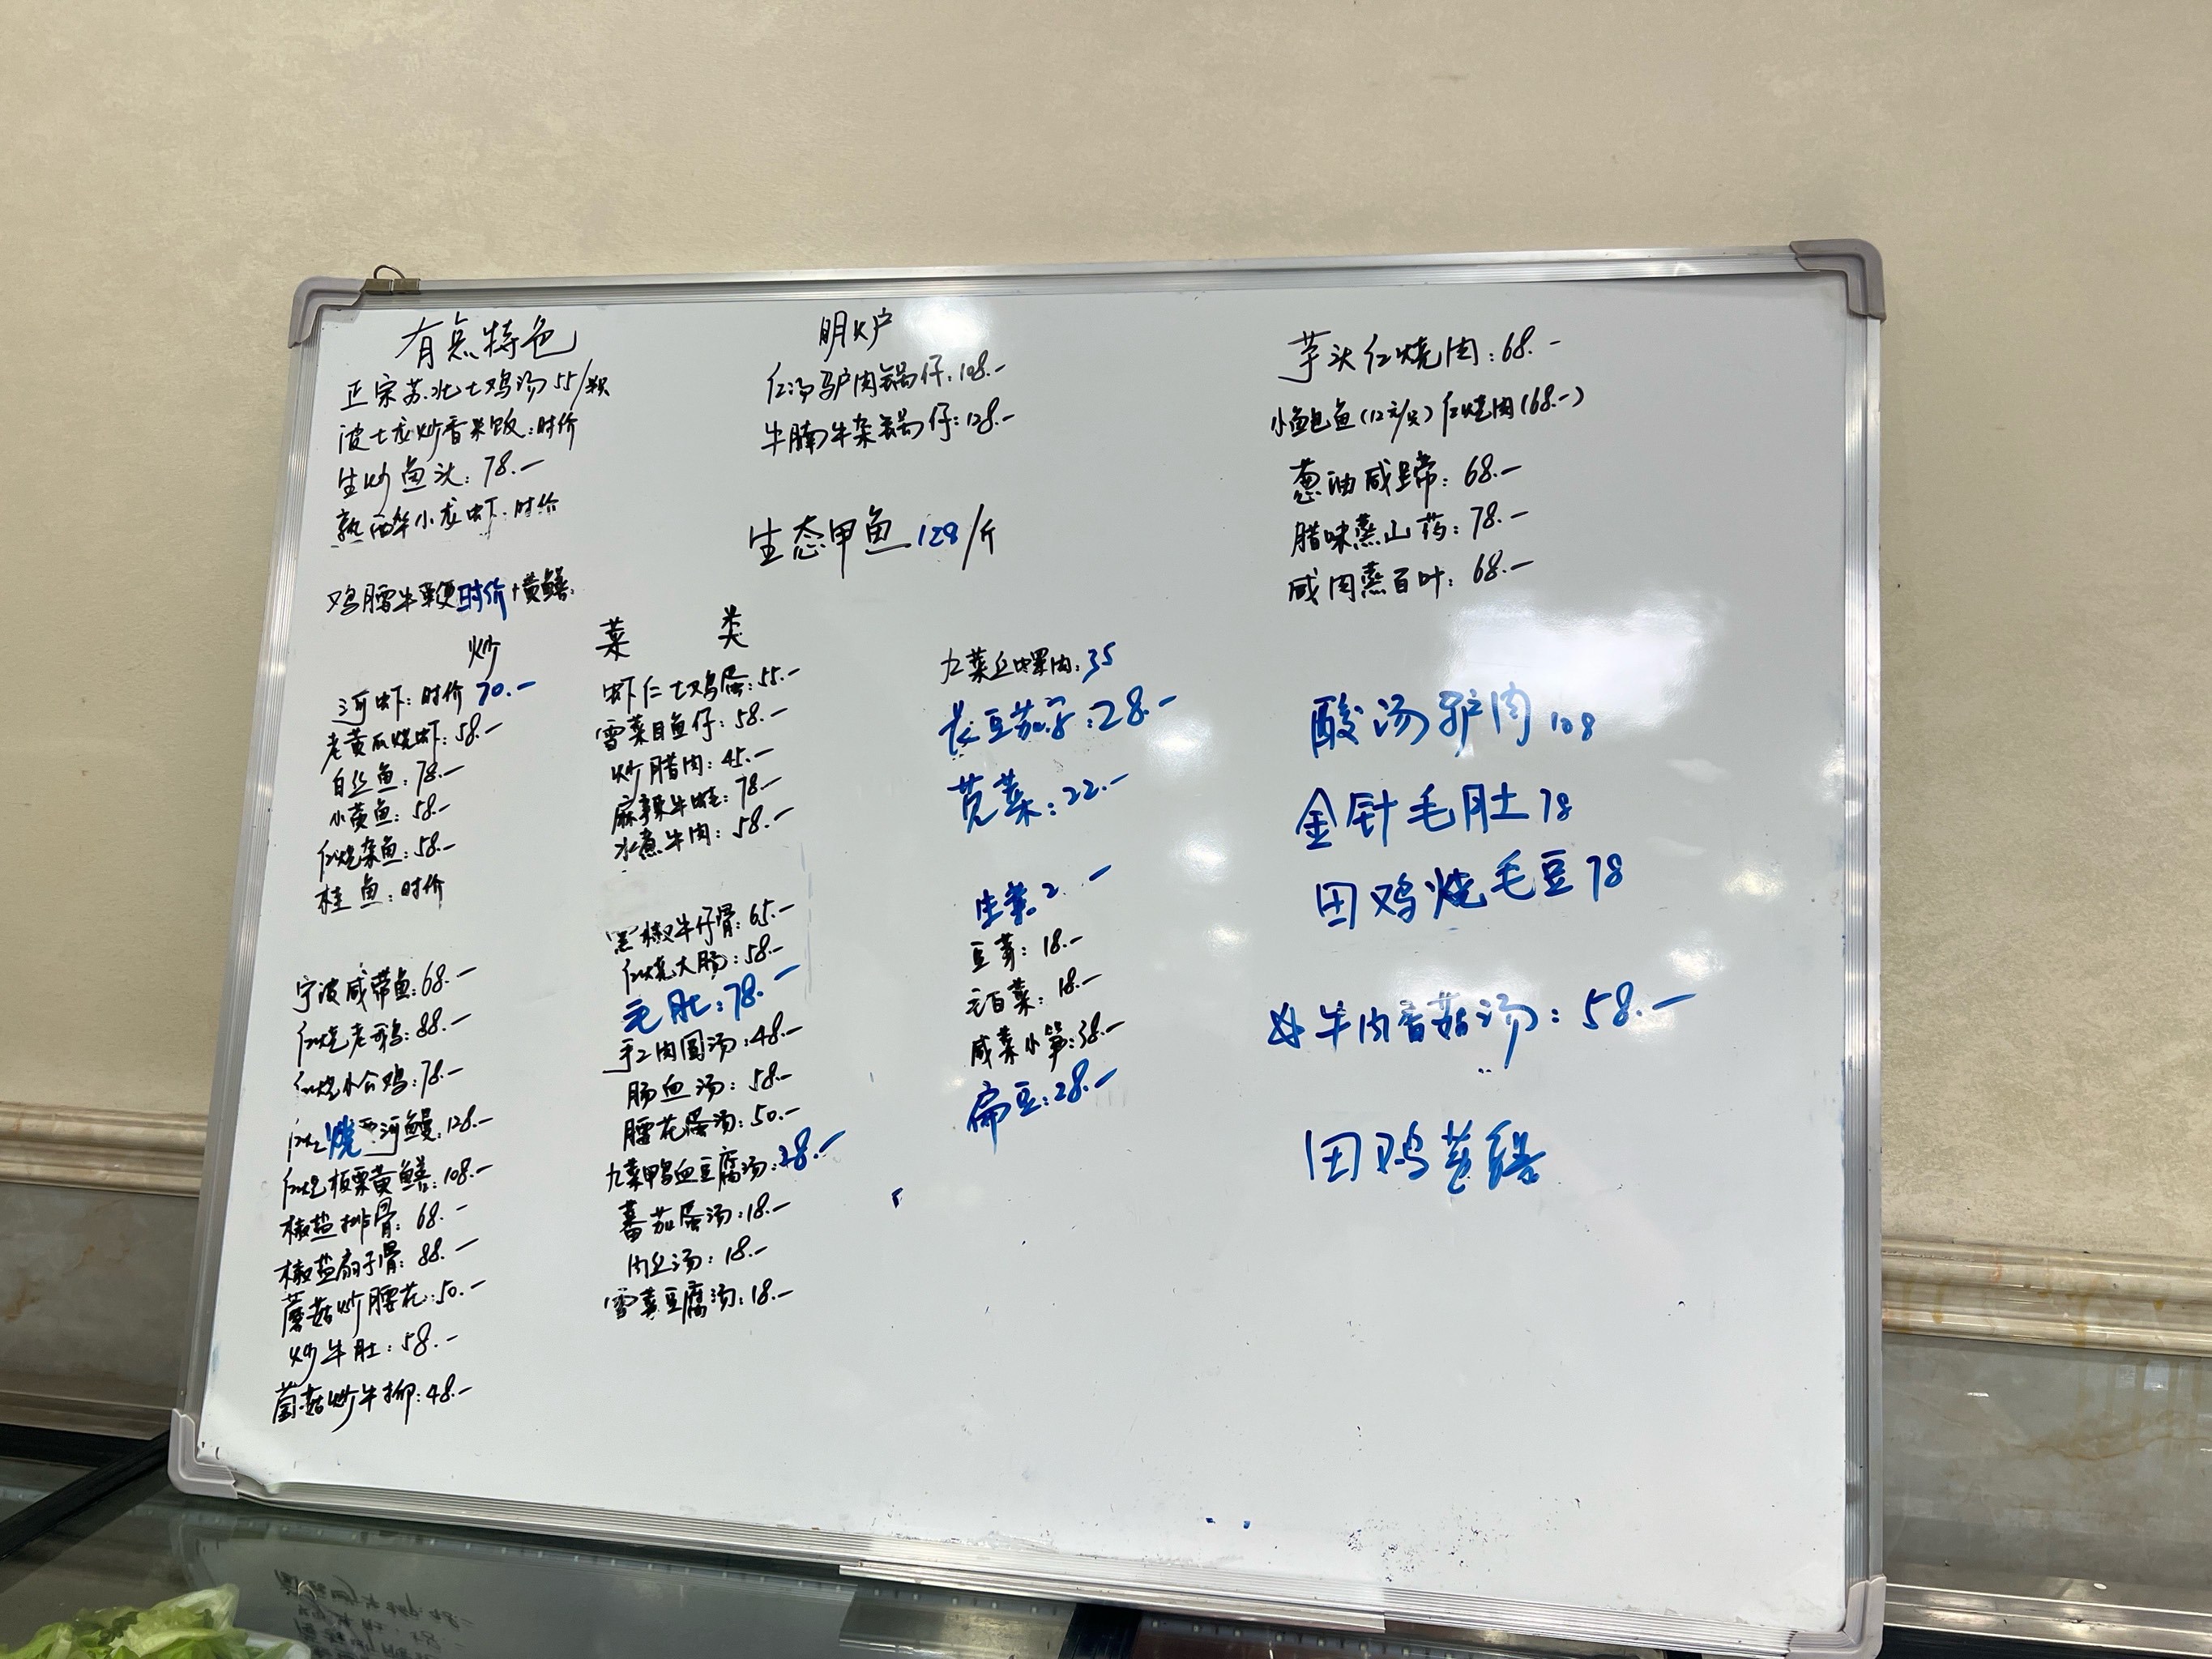 有点特色
正宗苏北土鸡汤55/
波士龙炒香米饭:时价
生炒鱼头:78.-
熟醉小龙虾:时价
鸡腰牛鞭时价+黄鳝:
明炉
红汤驴肉锅仔:108.-
牛腩牛杂锅仔:128.-
生态甲鱼128/斤
炒 菜 类
河虾:时价70.-
老黄瓜烧虾:58.-
白丝鱼:78.-
小黄鱼:58.-
红烧杂鱼:58.-
桂鱼:时价
宁波咸带鱼:68.-
红烧老鹅:88.-
红烧小公鸡:78.-
红烧河鳗:128.-
红烧板栗黄鳝:108.-
椒盐排骨:68.-
椒盐扇子骨:88.-
蘑菇炒腰花:50.-
炒牛肚:58.-
菌菇炒牛柳:48.-
虾仁土鸡蛋:55.-
雪菜目鱼仔:58.-
炒腊肉:45.-
麻辣牛蛙:78.-
水煮牛肉:58.-
黑椒牛仔骨:65.-
红烧大肠:58.-
毛肚:78.-
手工肉圆汤:48.-
肠血汤:58.-
腰花蛋汤:50.-
九菜鸭血豆腐汤:28.-
蕃茄蛋汤:18.-
肉丝汤:18.-
雪菜豆腐汤:18.-
九菜丝螺肉:35
长豆茄子:28.-
苋菜:22.-
生菜:2 -
豆芽:18.-
毛白菜:18.-
咸菜小笋:38.-
扁豆:28.-
芋头红烧肉:68.-
小鲍鱼(12元/只)红烧肉(68.-)
葱油咸蹄:68.-
腊味蒸山药:78.-
咸肉蒸百叶:68.-
酸汤驴肉108
金针毛肚78
田鸡烧毛豆78
牛肉香菇汤:58.-
田鸡黄鳝